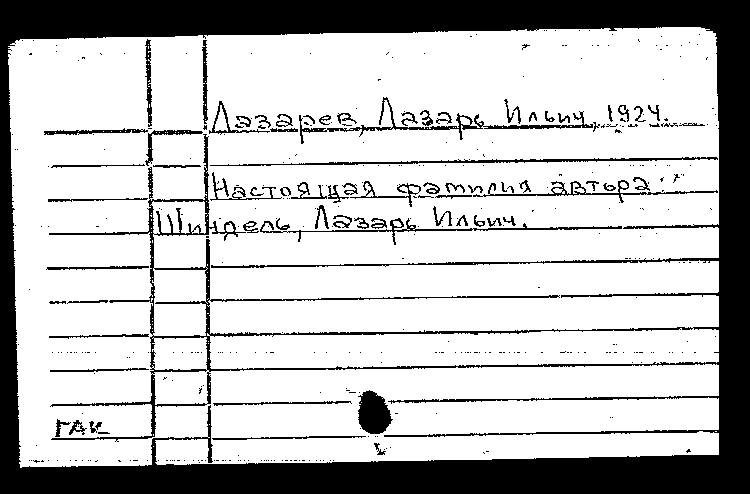 Лазарев, Лазарь Ильич, 1924.
Настоящая фамилия автора:
Шиндель, Лазарь Ильич.
ГАК